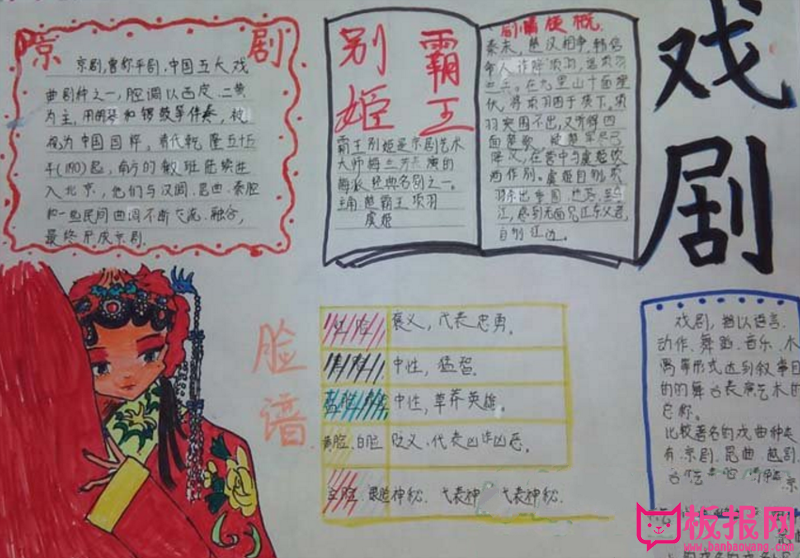 京剧
京剧,曾称平剧,中国五大戏
曲剧种之一,腔调以西皮、二黄
为主,用胡琴和锣鼓等伴奏,被
视为中国国粹,清代乾隆五十五
年(1790)起,南方的徽班陆续进
入北京,他们与汉调、昆曲、秦腔
和一些民间曲调不断交流、融合,
最终形成京剧.
霸王
别姬
霸王别姬是京剧艺术
大师梅兰芳表演的
梅派经典名剧之一。
主角楚霸王项羽
虞姬
剧情梗概
秦末,楚汉相争,韩信
命人诈降项羽,
在九里山十面埋
伏,将项羽困于垓下,项
羽突围不出,又听得四
面楚歌,
降汉,在营中与虞姬饮
酒作别。虞姬自刎,项
羽杀出重围,
江,感到无面见江东父老,
自刎江边。
戏剧
脸谱
红脸 褒义,代表忠勇。
黑脸 中性,猛智。
蓝脸 中性,草莽英雄。
黄脸、白脸 贬义、代表凶诈凶恶。
金脸、银脸神秘,代表神 代表神秘.
戏剧,指以语言、
动作、舞蹈、音乐、木
偶等形式达到叙事目
的的舞台表演艺术的
总称。
比较著名的戏曲种类
有:京剧、昆曲、越剧、
京
板报网
www.banbaowang.com